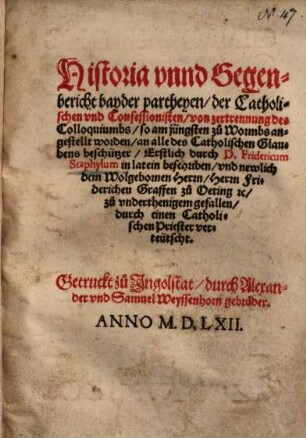 N. 47
Historia vnnd Gegen-
bericht bayder partheyen/ der Catholi-
schen vnd Confessionisten/ von zertrennung des
Colloquiumbs/ so am jüngsten zů Wormbs an-
gestellt worden/ an alle des Catholischen Glau-
bens beschützer/ Erstlich durch D. Fridericum
Staphylum in latein beschriben/ vnd newlich
dem Wolgebornen Herrn/ Herrn Fri-
derichen Graffen zů Oeting ꝛc/
zů vnderthenigem gefallen/
durch einen Catholi-
schen Priester ver-
teütscht.
Getruckt zů Jngolstat/ durch Alexan-
der vnd Samuel Weyssenhorn gebrüder.
ANNO M. D. LXII.